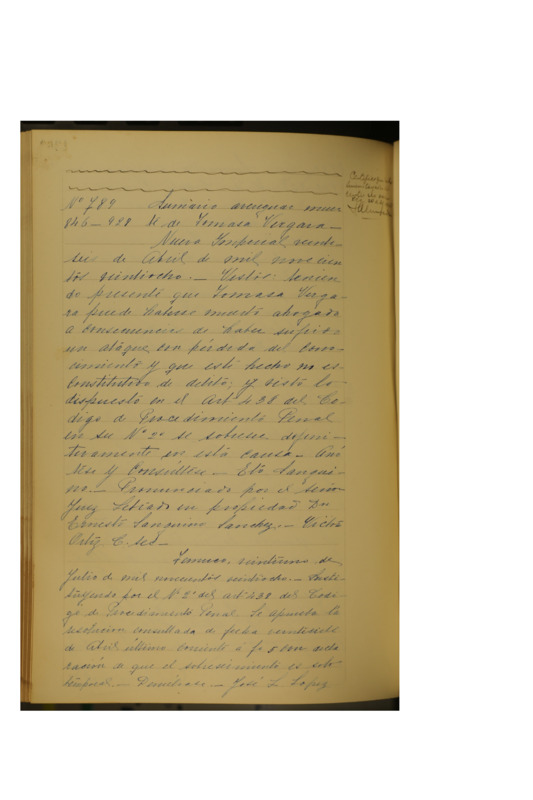 Nº 789 Sumario averiguar muer
846-928 te de Tomasa Vergara-
Nueva Imperial, veinti-
seis de Abril de mil novecien
tos veintiocho.- Vistos: tenien
do presente que Tomasa Verga-
ra puede haberse muerto ahogada
a consecuencia de haber sufrido
un ataque con pérdida del cono-
cimiento y que este hecho no es
constitutivo de delito; y visto lo
dispuesto en el Artº 438 del Có-
digo de Procedimiento Penal
en su Nº 2º se sobresee defini-
tivamente en esta causa.- Anó
tese y Consúltese.- Eto Sanqui-
no.- Pronunciado por el señor
Juez Letrado en propiedad Dn
Ernesto Sanquino Sanchez.- Victor
Ortiz C. sec-
Temuco, veintiuno de
Julio de mil novecientos veintiocho.- Susti-
tuyendo por el Nº 2º del art 438 del Codi-
go de Procedimiento Penal. Se aprueba la
resolucion consultada de fecha veintiseis
de Abril último corriente a fs 5 con decla
ración de que el sobreseimiento es solo
temporal.- Devuélvase.- José L. Lopez